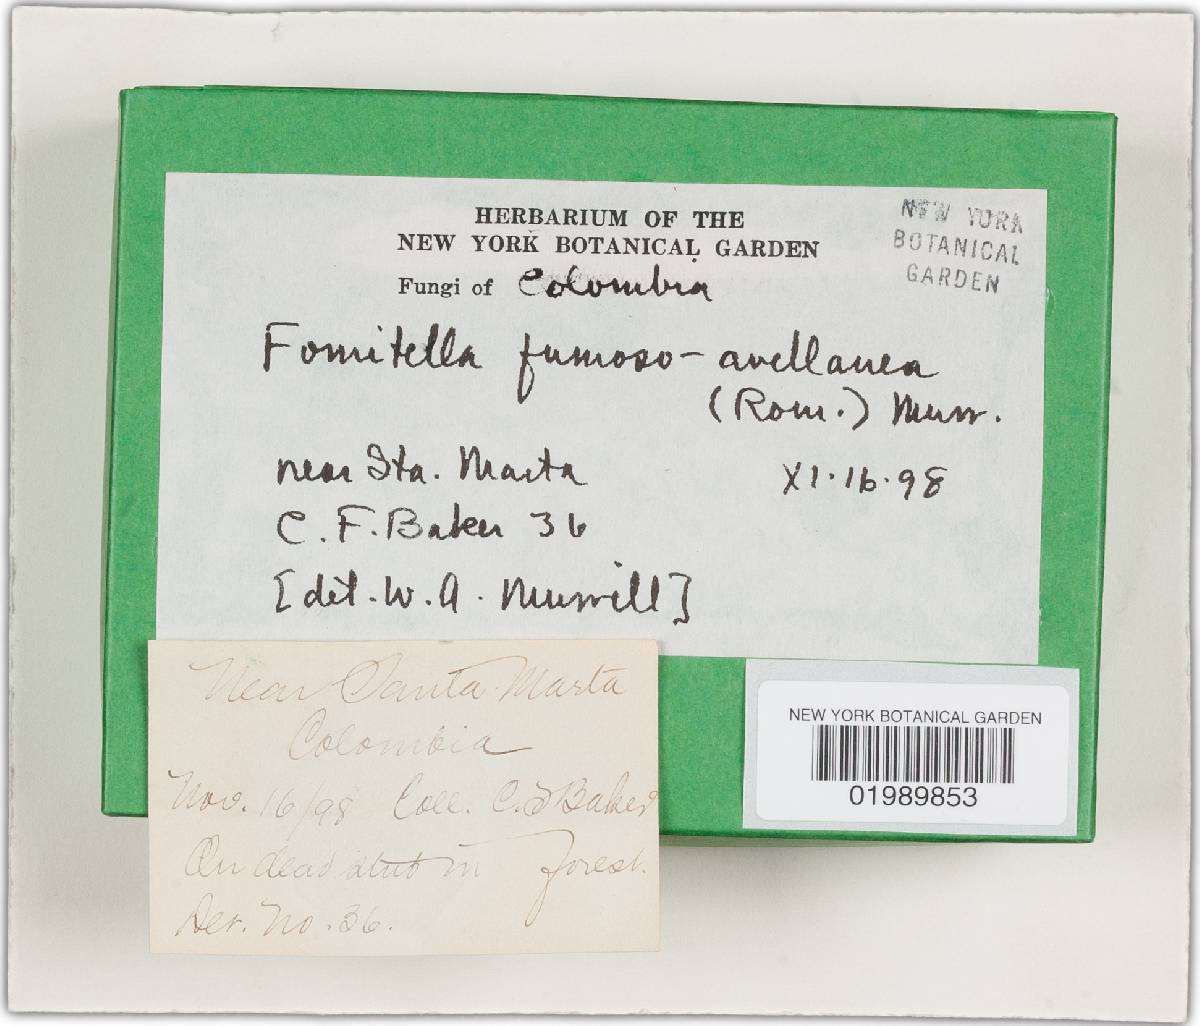 HERBARIUM OF THE
NEW YORK BOTANICAL GARDEN
Fungi of Colombia
NEW YORK
BOTANICAL
GARDEN
Fomitella fumoso-avellanea
(Rom.) Murr.
near Sta. Marta XI.16.98
C.F. Baker 36
[det. W.A. Murrill]
Near Santa Marta
Colombia
Nov. 16/98 Coll. C.F Baker
On dead stub in forest.
No. 36.
NEW YORK BOTANICAL GARDEN
01989853